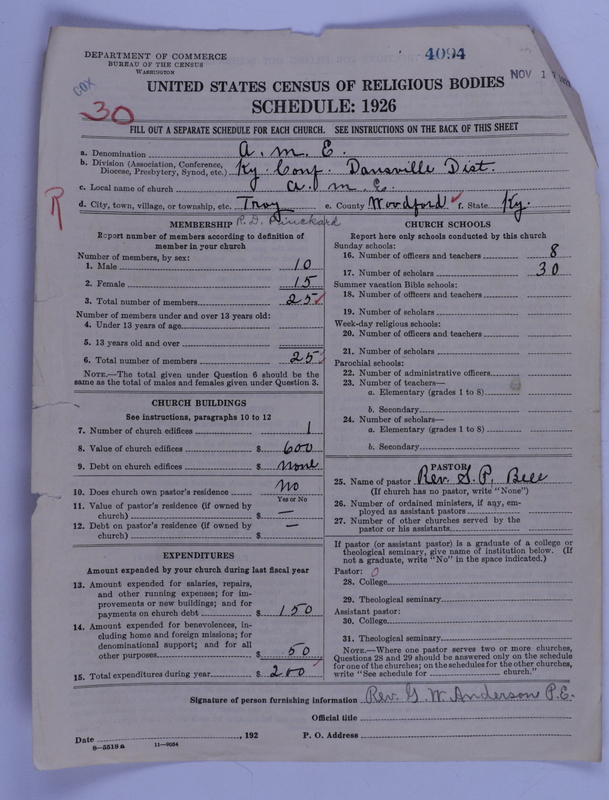 DEPARTMENT OF COMMERCE
BUREAU OF THE CENSUS
WASHINGTON
4094
NOV 1
COX
30
UNITED STATES CENSUS OF RELIGIOUS BODIES
SCHEDULE: 1926
FILL OUT A SEPARATE SCHEDULE FOR EACH CHURCH. SEE INSTRUCTIONS ON THE BACK OF THIS SHEET
a. Denomination A. M. E.
b. Division (Association, Conference, Diocese, Presbytery, Synod, etc.) Ky. Conf. Dansville Dist.
c. Local name of church A. M. E.
d. City, town, village, or township, etc. Troy e. County Woodford f. State Ky.
R
MEMBERSHIP R.D.
Report number of members according to definition of
member in your church
Number of members, by sex:
1. Male 10
2. Female 15
3. Total number of members 25
Number of members under and over 13 years old:
4. Under 13 years of age
5. 13 years old and over
6. Total number of members 25
NOTE.—The total given under Question 6 should be the
same as the total of males and females given under Question 3.
CHURCH BUILDINGS
See instructions, paragraphs 10 to 12
7. Number of church edifices 1
8. Value of church edifices $ 600
9. Debt on church edifices $ None
10. Does church own pastor's residence No
Yes or No
11. Value of pastor's residence (if owned by
church) $ —
12. Debt on pastor's residence (if owned by
church) $ —
EXPENDITURES
Amount expended by your church during last fiscal year
13. Amount expended for salaries, repairs,
and other running expenses; for im-
provements or new buildings; and for
payments on church debt $ 150
14. Amount expended for benevolences, in-
cluding home and foreign missions; for
denominational support; and for all
other purposes $ 50
15. Total expenditures during year $ 200
CHURCH SCHOOLS
Report here only schools conducted by this church
Sunday schools:
16. Number of officers and teachers 8
17. Number of scholars 30
Summer vacation Bible schools:
18. Number of officers and teachers
19. Number of scholars
Week-day religious schools:
20. Number of officers and teachers
21. Number of scholars
Parochial schools:
22. Number of administrative officers
23. Number of teachers—
a. Elementary (grades 1 to 8)
b. Secondary
24. Number of scholars—
a. Elementary (grades 1 to 8)
b. Secondary
PASTOR
25. Name of pastor Rev. G. P. Bell
(If church has no pastor, write "None")
26. Number of ordained ministers, if any, em-
ployed as assistant pastors
27. Number of other churches served by the
pastor or his assistants
If pastor (or assistant pastor) is a graduate of a college or
theological seminary, give name of institution below. (If
not a graduate, write "No" in the space indicated.)
Pastor: 0
28. College
29. Theological seminary
Assistant pastor:
30. College
31. Theological seminary
NOTE.—Where one pastor serves two or more churches,
Questions 28 and 29 should be answered only on the schedule
for one of the churches; on the schedules for the other churches,
write "See schedule for church."
Signature of person furnishing information Rev. G. W. Anderson P.E.
Official title
Date , 192 P. O. Address
8—5518a 11—9054